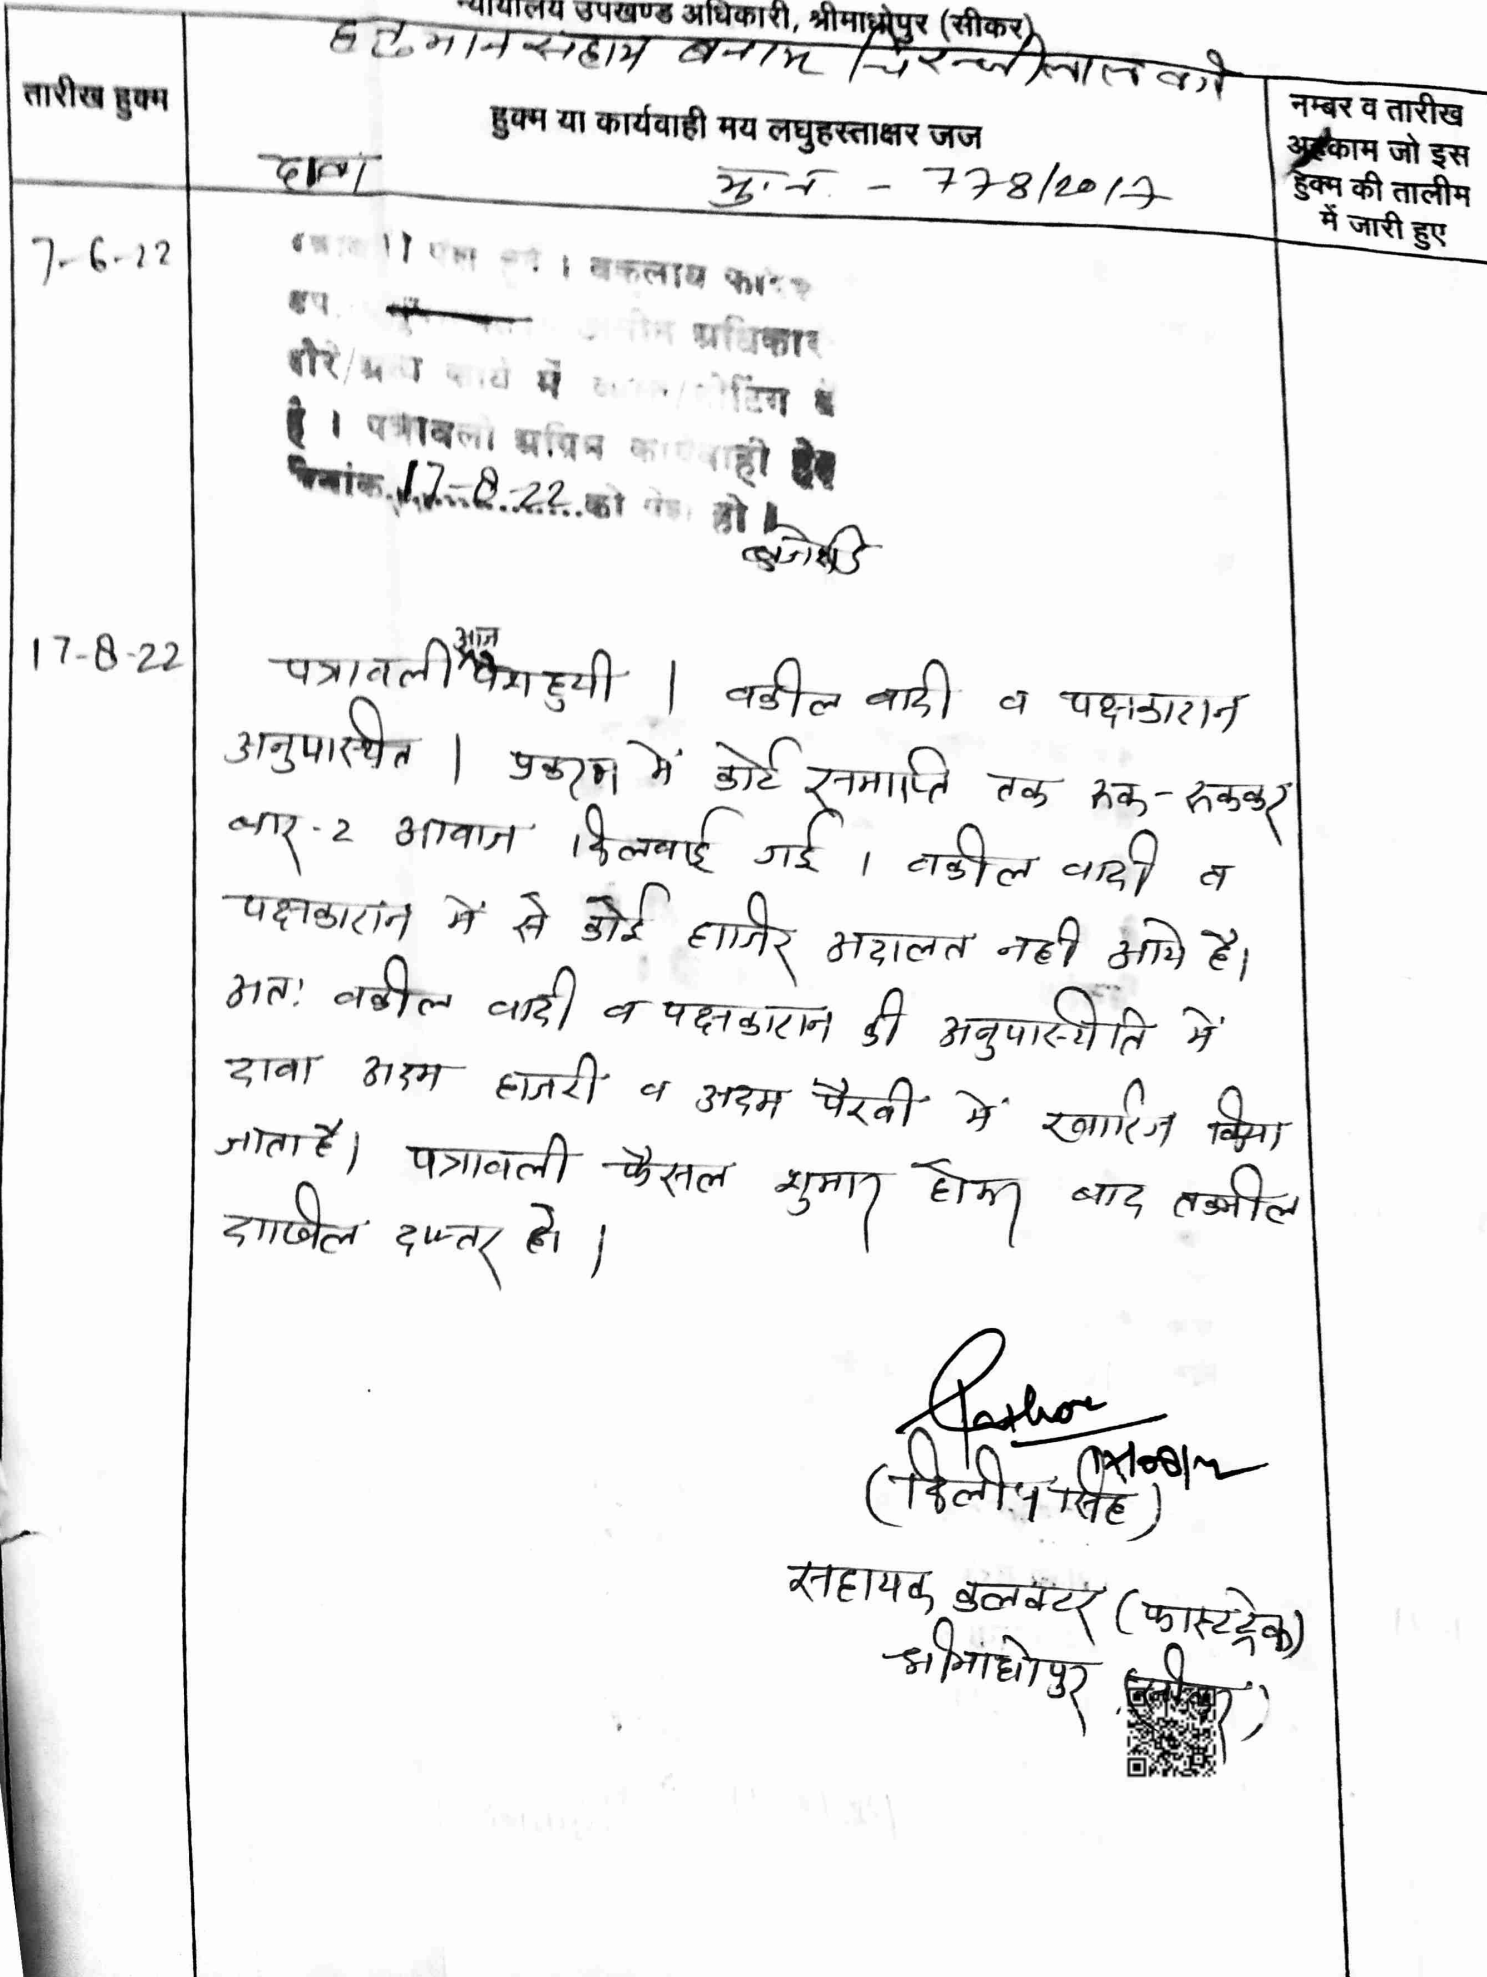 न्यायालय उपखण्ड अधिकारी, श्रीमाधोपुर (सीकर)
हनुमान सहाय बनाम चिरन्जीलाल वगै
तारीख हुक्म
हुक्म या कार्यवाही मय लघुहस्ताक्षर जज
नम्बर व तारीख
अहकाम जो इस
हुक्म की तालीम
में जारी हुए
दावा
मु.न. - 778/2017
7-6-22
वकलाय
अधिकारी
दौरे/अन्य कार्य में /मीटिंग में
है । पत्रावली अग्रिम कार्यवाही हेतु
दिनांक 17-8-22 को पेश हो ।
17-8-22
पत्रावली आज पेश हुयी । वकील वादी व पक्षकारान
अनुपास्थित । प्रकरण में कोर्ट समाप्ति तक रूक-रूककर
बार-2 आवाज दिलवाई गई । वकील वादी व
पक्षकारान में से कोई हाजिर अदालत नही आये है।
अतः वकील वादी व पक्षकारान की अनुपास्थिति में
दावा अदम हाजरी व अदम पैरवी में खारिज किया
जाता है। पत्रावली फैसल शुमार होकर बाद तकमील
दाखिल दफ्तर हो ।
(दिलीप सिंह)
सहायक कलक्टर (फास्टट्रेक)
श्रीमाधोपुर (सीकर)